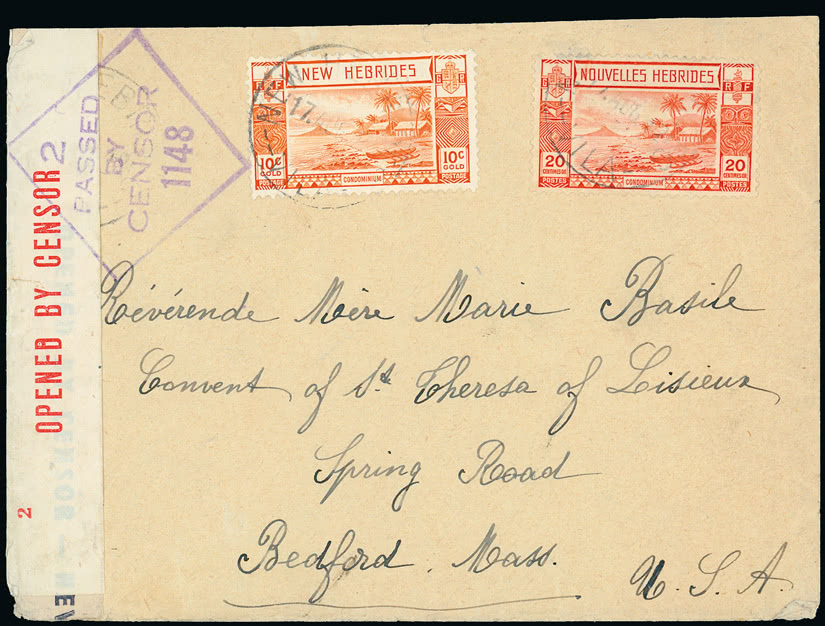 2
PASSED
BY
CENSOR
1148
OPENED BY CENSOR
2
NEW HEBRIDES
R F
10c
GOLD
10c
GOLD
POSTAGE
CONDOMINIUM
POSTAGE
NOUVELLES HEBRIDES
R F
20
CENTIMES OR
20
CENTIMES OR
POSTES
CONDOMINIUM
POSTES
Révérende Mère Marie Basile
Convent of St Theresa of Lisieux
Spring Road
Bedford. Mass.
U. S. A.